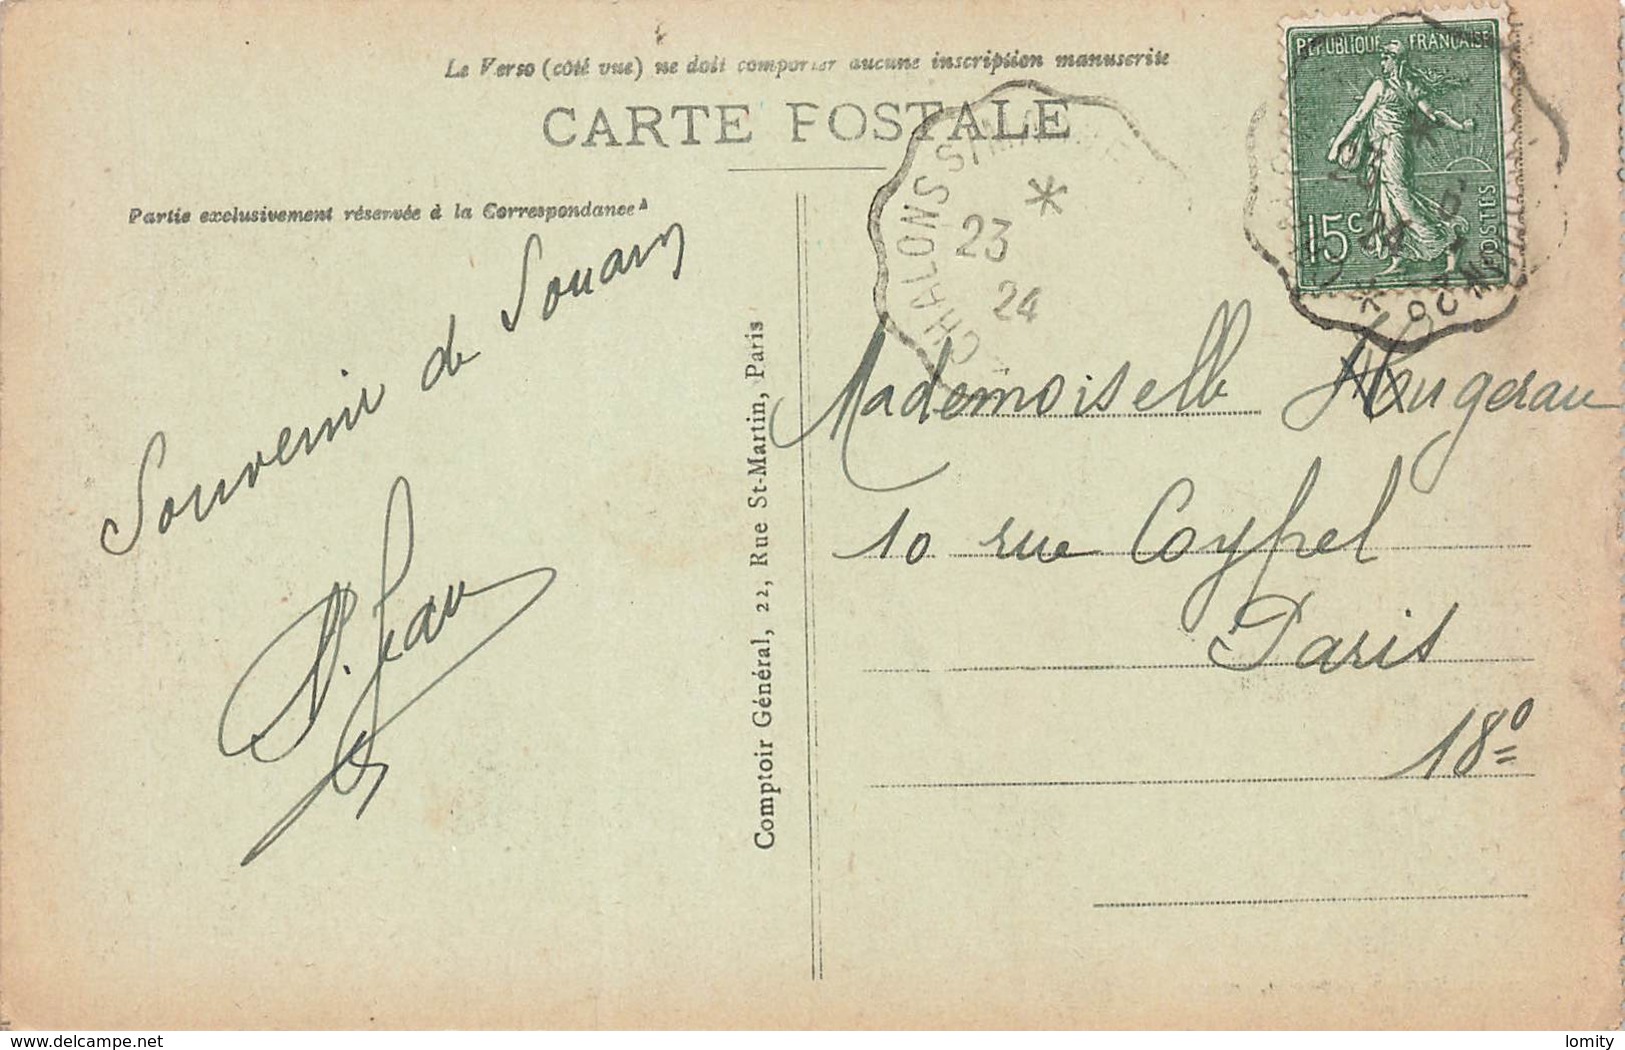 Le Verso (côté vue) ne doit comporter aucune inscription manuscrite
CARTE POSTALE
Partie exclusivement réservée à la Correspondance
RÉPUBLIQUE FRANÇAISE
15c
POSTES
CHALONS S MARNE
23
24
Souvenir de Souain
Jean
Comptoir Général, 22, Rue St-Martin, Paris
Mademoiselle Hougerau
10 rue Coypel
Paris
18°
www.delcampe.net
lomity